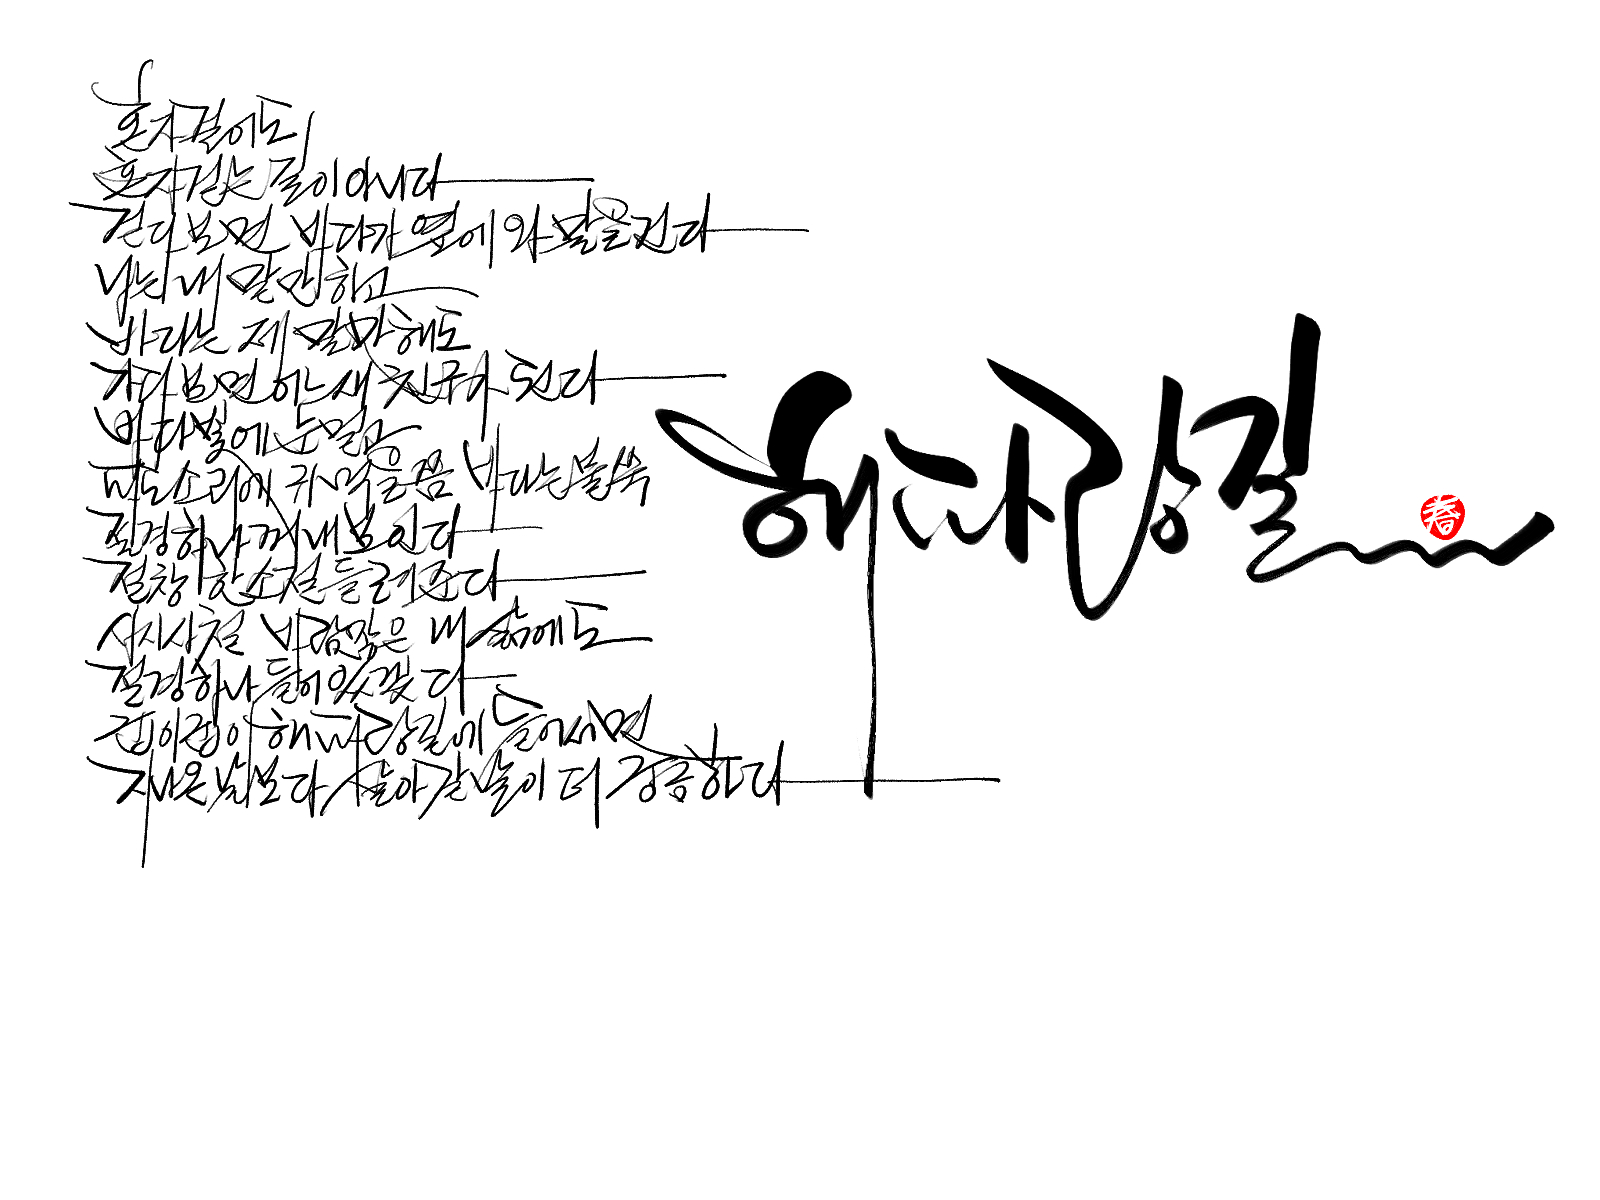 혼자걸어도
혼자걷는 길이 아니다
걷다보면 바다가 옆에 와 말을 건다
나는 내 말만 하고
바다는 제 말만 해도
가다보면 어느새 친구가 된다
바다빛에 눈멀고
파도소리에 귀먹을쯤 바다는 불쑥
절경하나 꺼내보인다
절창 한소절 들려준다
사시사철 바람맞은 내 삶에도
절경하나 들어있겠다
굽이굽이 해파랑길에 들어서면
지나온 날보다 살아갈 날이 더 궁금하다
해파랑길
春